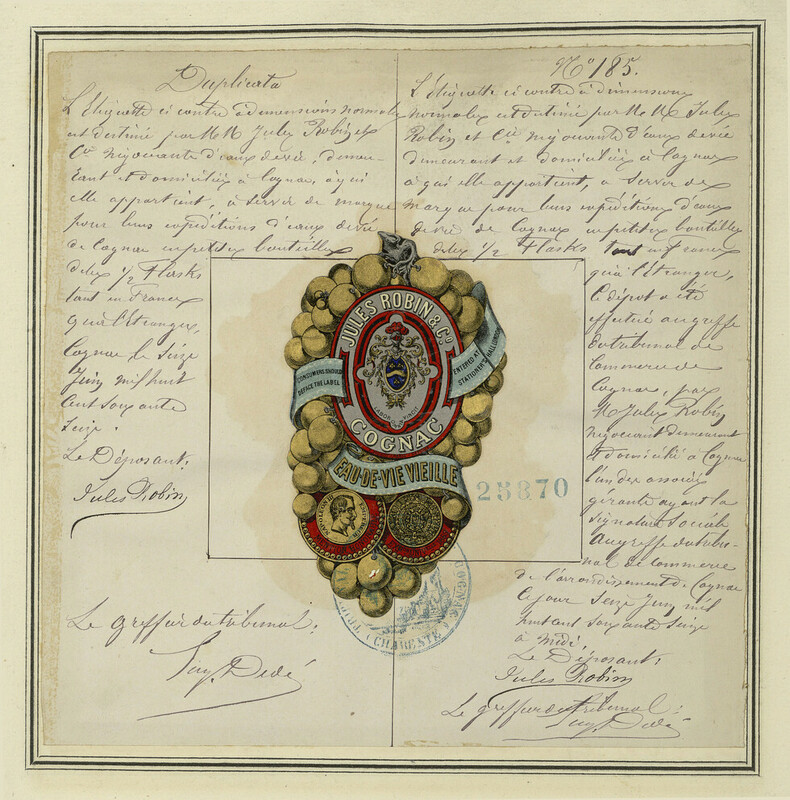 Duplicata
L'Etiquette ci contre à dimensions normales
est destiné par MM Jules Robin et
Cie négociants d'eaux de vie, demeu-
rant et domiciliés à Cognac, à qui
elle appartient, à servir de marque
pour leurs expéditions d'eaux de vie
de Cognac en petites bouteilles
dites 1/2 Flasks
tant en France
qu'à l'Etranger,
Cognac le Seize
Juin mil huit
cent soixante
seize.
Le Déposant,
Jules Robin
Le greffier du tribunal:
No 185.
L'Etiquette ci contre à dimensions
normales est destiné par MM Jules
Robin et Cie négociants d'eaux de vie
demeurant et domiciliés à Cognac
à qui elle appartient, à servir de
marque pour leurs expéditions d'eaux
de vie de Cognac en petites bouteilles
dites 1/2 Flasks tant en France
qu'à l'Etranger,
Ce dépôt a été
effectué au greffe
du tribunal de
Commerce de
Cognac, par
M Jules Robin
négociant demeurant
et domicilié à Cognac
l'un des associés
gérants ayant la
signature sociale
au greffe du tribu-
nal de commerce
de l'arrondissement de Cognac
ce jour Seize Juin mil
huit cent soixante seize
à midi,
Le Déposant,
Jules Robin
Le greffier du tribunal:
JULES ROBIN & Co
CONSUMERS SHOULD
DEFACE THE LABEL
ENTERED AT
STATIONERS HALL LONDON
COGNAC
EAU-DE-VIE VIEILLE
25870
COGNAC
CHARENTE